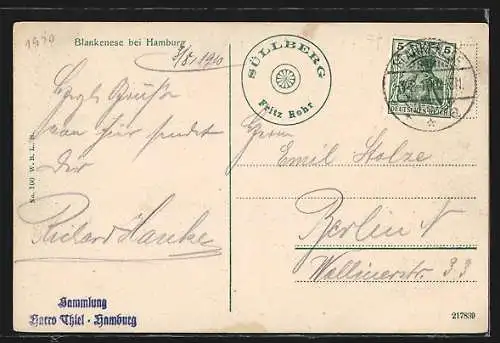 1910
Blankenese bei Hamburg
3/8 1910
SÜLLBERG
Fritz Rohr
5 5
DEUTSCHES REICH
Herzl. Grüße
von hier sendet
Dir
Richard Hancke
Herrn
Emil Stolze
Berlin N
Wollinerstr. 33
No. 100 W. B. L. H.
Sammlung
Harro Thiel - Hamburg
217839